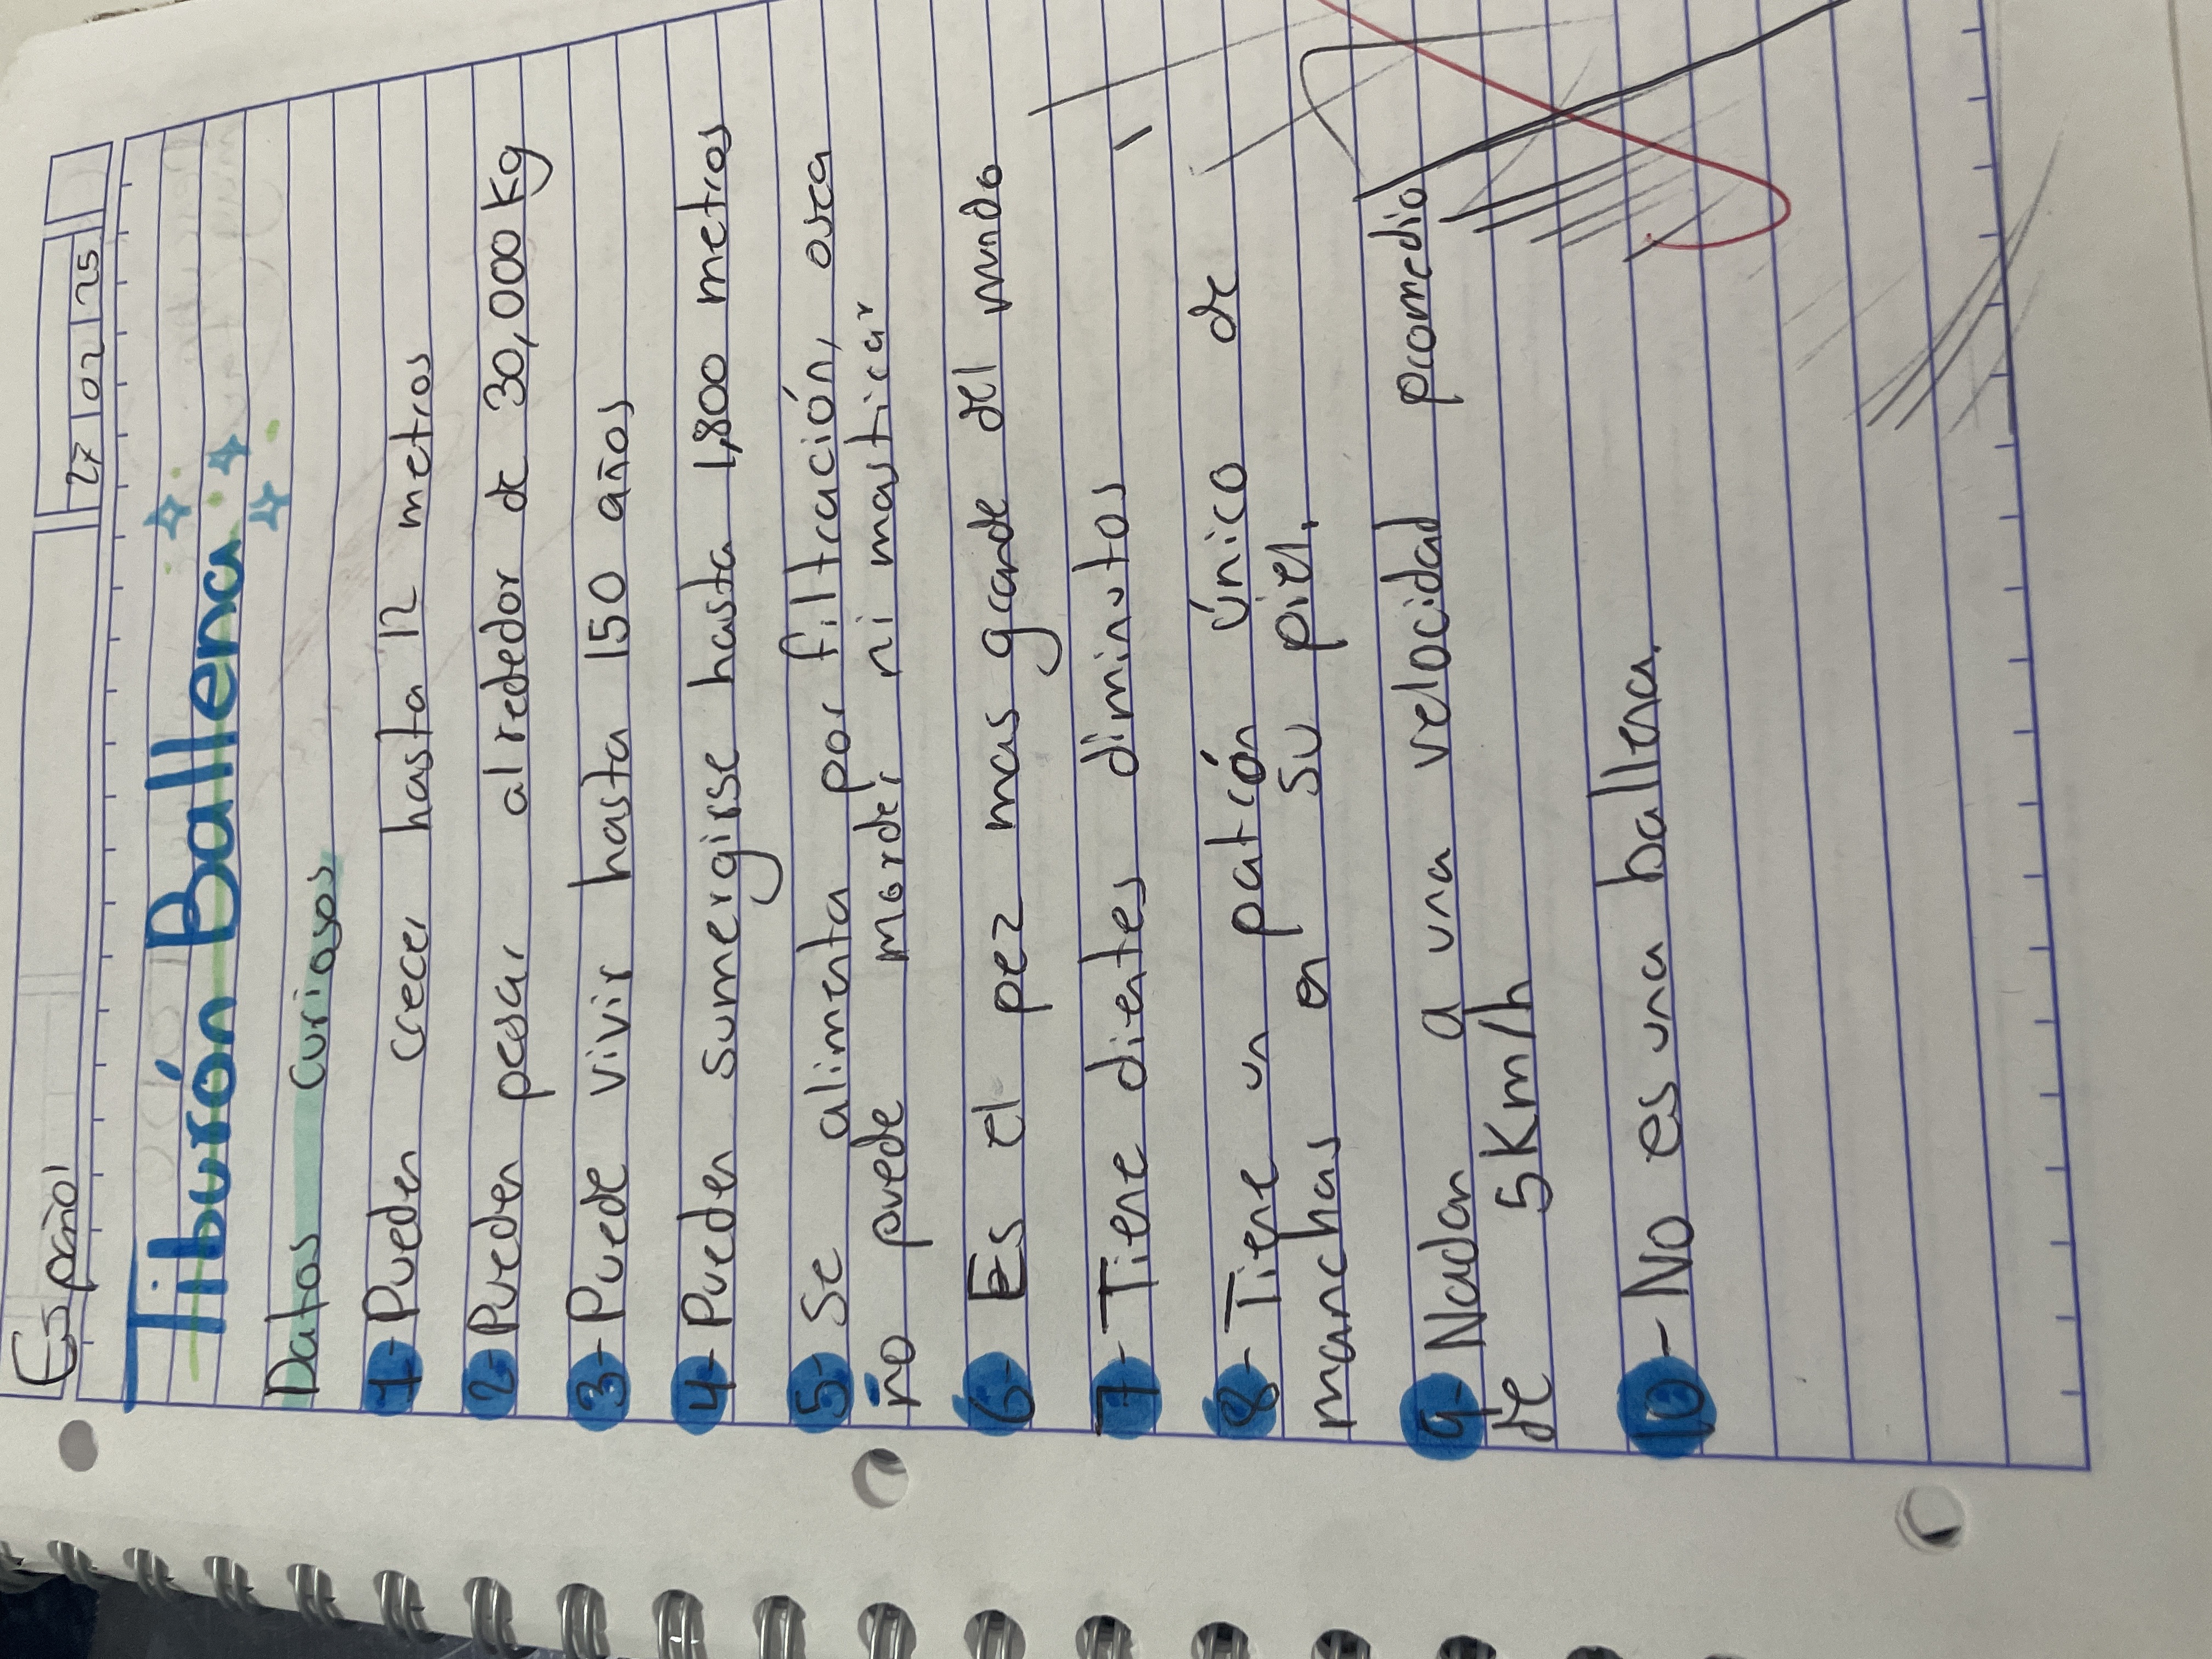 Español
27 02 25
Tiburón Ballena
Datos curiosos
1- Pueden crecer hasta 12 metros
2- Pueden pesar alrededor de 30,000 Kg
3- Puede vivir hasta 150 años
4- Pueden sumergirse hasta 1,800 metros
5- Se alimenta por filtración, osea
no puede morder ni masticar
6- Es el pez mas grande del mundo
7- Tiene dientes diminutos
8- Tiene un patrón único de
manchas en su piel.
9- Nadan a una velocidad promedio
de 5Km/h
10- No es una ballena.